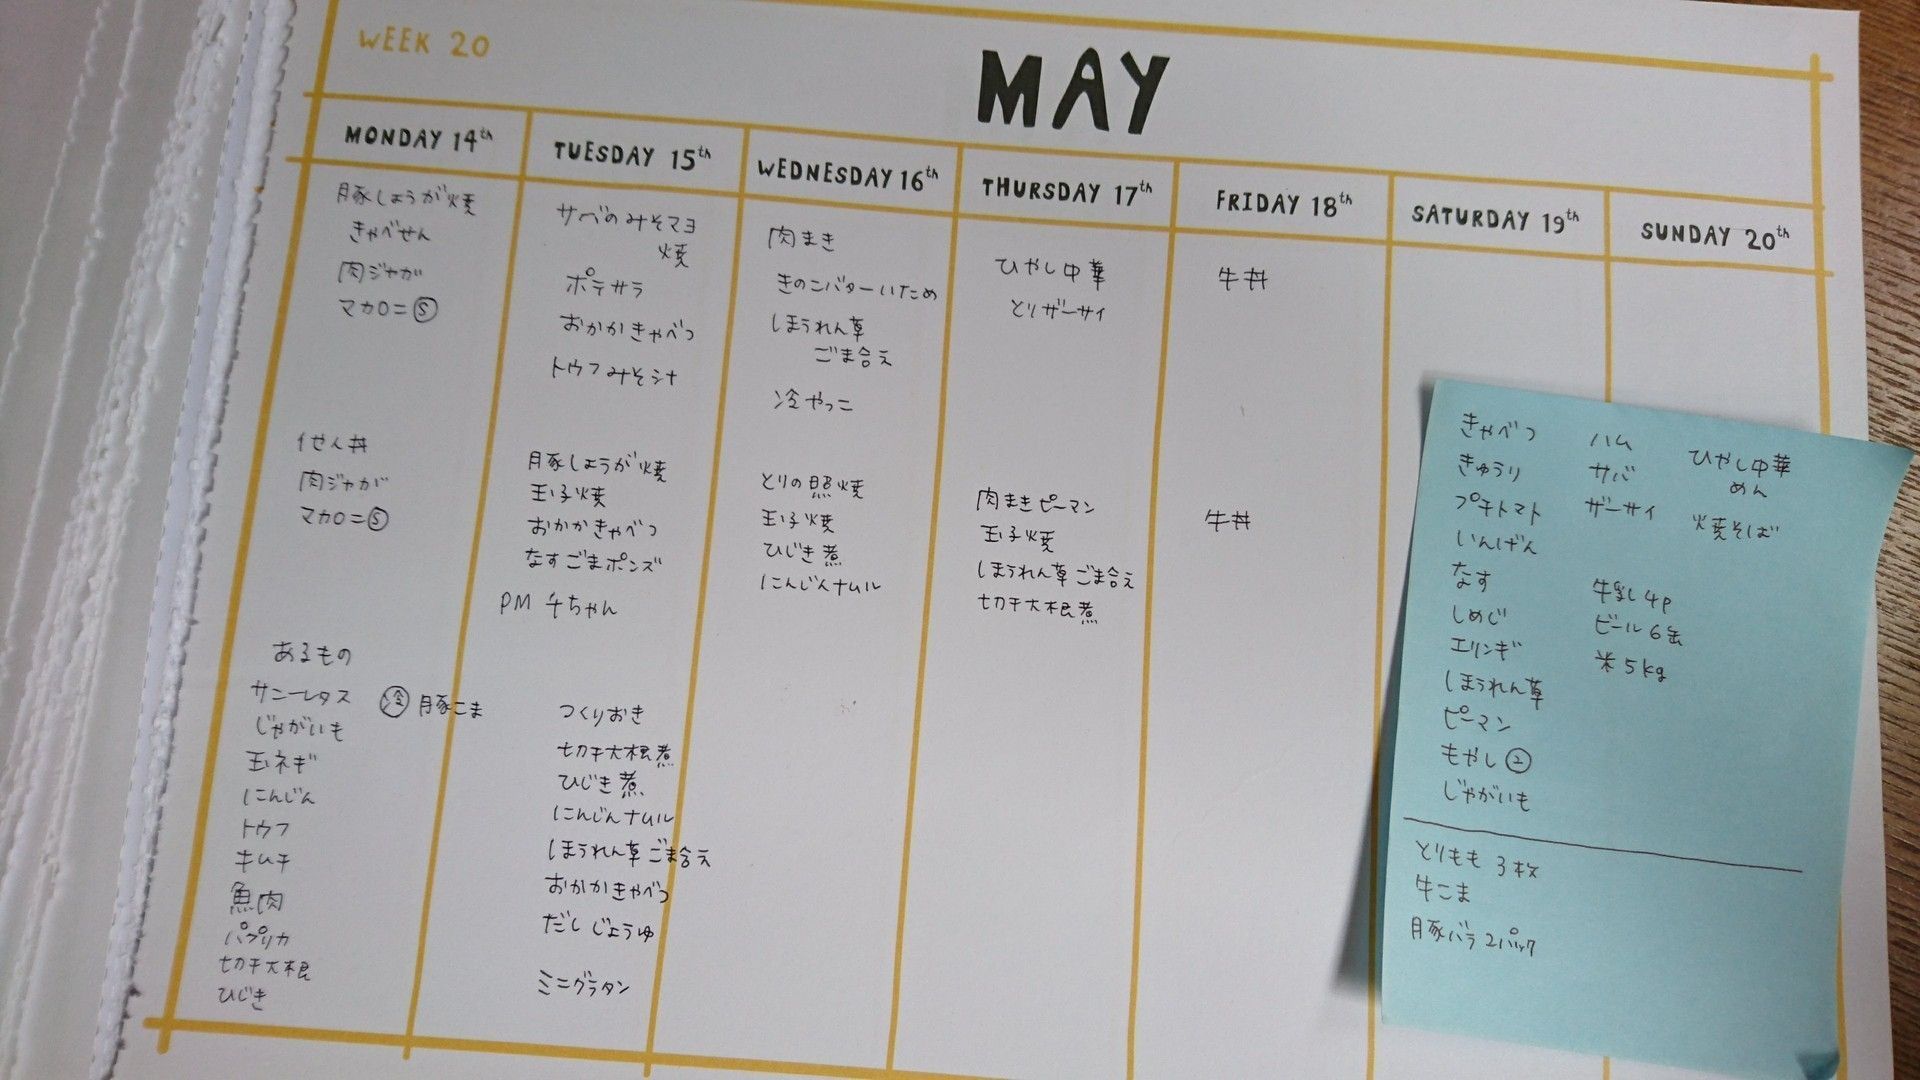 WEEK 20
MAY
MONDAY 14th
豚しょうが焼
きゃべせん
肉ジャガ
マカロニⓈ
肉ジャガ
マカロニⓈ
あるもの
サニーレタス
じゃがいも
玉ネギ
にんじん
トウフ
キムチ
魚肉
パプリカ
切干大根
ひじき
冷 豚こま
TUESDAY 15th
サバのみそマヨ
焼
ポテサラ
おかかきゃべつ
トウフみそシナ
豚しょうが焼
玉子焼
おかかきゃべつ
なすごまポンズ
PM 千ちゃん
つくりおき
切干大根煮
ひじき煮
にんじんナムル
ほうれん草ごま合え
おかかきゃべつ
だしじょうゆ
ミニグラタン
WEDNESDAY 16th
肉まき
きのこバターいため
ほうれん草
ごま合え
冷やっこ
とりの照焼
玉子焼
ひじき煮
にんじんナムル
THURSDAY 17th
ひやし中華
とりザーサイ
肉まきピーマン
玉子焼
ほうれん草ごま合え
切干大根煮
FRIDAY 18th
牛丼
牛丼
SATURDAY 19th
SUNDAY 20th
きゃべつ
きゅうり
プチトマト
いんげん
なす
しめじ
エリンギ
ほうれん草
ピーマン
もやし②
じゃがいも
ハム
サバ
ザーサイ
牛乳4P
ビール6缶
米5kg
ひやし中華
めん
焼そば
とりもも 3枚
牛こま
豚バラ2パック